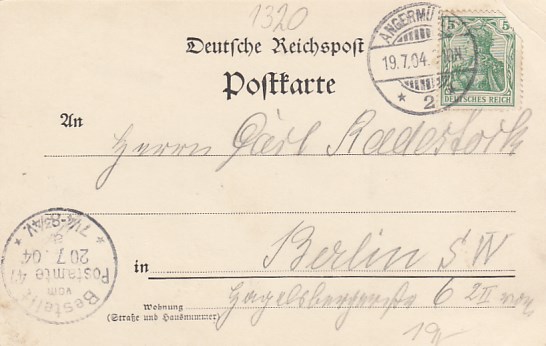 1320
Deutsche Reichspost
Postkarte
ANGERMÜ
19.7.04.
* 2
5
DEUTSCHES REICH
An
Herrn Carl Radestock
in Berlin S W
Wohnung
(Straße und Hausnummer)
Hagelsbergerstr 6 2 II
19
Bestellt
vom
Postamte 47
20 7. 04
* 7¼-8¾V. *